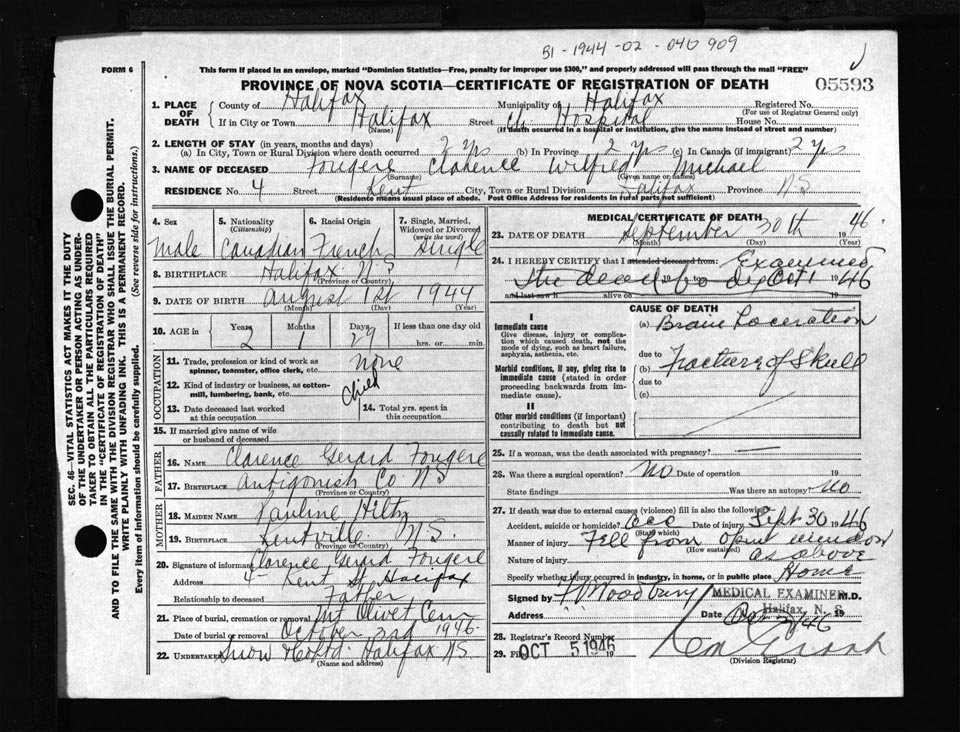 B1-1944-02-040909
FORM 6
This form if placed in an envelope, marked "Dominion Statistics—Free, penalty for improper use $300," and properly addressed will pass through the mail "FREE"
PROVINCE OF NOVA SCOTIA—CERTIFICATE OF REGISTRATION OF DEATH
05593
1. PLACE OF DEATH
County of Halifax Municipality of Halifax Registered No.
(For use of Registrar General only)
If in City or Town Halifax Street Hospital House No.
(Name) (If death occurred in a hospital or institution, give the name instead of street and number)
2. LENGTH OF STAY (in years, months and days)
(a) In City, Town or Rural Division where death occurred 2 yrs (b) In Province 2 yrs (c) In Canada (if immigrant) 2 yrs
3. NAME OF DECEASED Fougere Clarence Wilfred Michael
(Surname) (Given name or names)
RESIDENCE No. 4 Street Kent City, Town or Rural Division Halifax Province N S
(Residence means usual place of abode. Post Office Address for residents in rural parts not sufficient)
4. Sex
Male
5. Nationality
(Citizenship)
Canadian
6. Racial Origin
French
7. Single, Married, Widowed or Divorced
(write the word)
Single
8. BIRTHPLACE Halifax N S
(Province or Country)
9. DATE OF BIRTH August 1st 1944
(Month) (Day) (Year)
10. AGE in Years Months Days If less than one day old
2 1 29 hrs. or min.
OCCUPATION
11. Trade, profession or kind of work as
spinner, teamster, office clerk, etc. None
12. Kind of industry or business, as cotton-
mill, lumbering, bank, etc. Child
13. Date deceased last worked
at this occupation
14. Total yrs. spent in
this occupation
15. If married give name of wife
or husband of deceased
FATHER
16. NAME Clarence Gerard Fougere
17. BIRTHPLACE Antigonish Co N S
(Province or Country)
MOTHER
18. MAIDEN NAME Pauline Hiltz
19. BIRTHPLACE Kentville N. S.
(Province or Country)
20. Signature of informant Clarence Gerard Fougere
Address 4 Kent St Halifax
Relationship to deceased Father
21. Place of burial, cremation or removal Mt Olivet Cem
Date of burial or removal October 2nd 1946
22. UNDERTAKER Snow & Co Ltd. Halifax N S
(Name and address)
MEDICAL CERTIFICATE OF DEATH
23. DATE OF DEATH September 30th 1946
(Month) (Day) (Year)
24. I HEREBY CERTIFY that I attended deceased from: Examined
the dead body Oct 1 1946
and last saw h alive on 19
CAUSE OF DEATH
I
Immediate cause
Give disease, injury or complica-
tion which caused death, not the
mode of dying, such as heart failure,
asphyxia, asthenia, etc.
(a) Brain Laceration
due to
Morbid conditions, if any, giving rise to
immediate cause (stated in order
proceeding backwards from im-
mediate cause).
(b) Fracture of Skull
due to
(c)
II
Other morbid conditions (if important)
contributing to death but not
causally related to immediate cause.
25. If a woman, was the death associated with pregnancy?
26. Was there a surgical operation? No Date of operation 19
State findings Was there an autopsy? No
27. If death was due to external causes (violence) fill in also the following:
Accident, suicide or homicide? acc Date of injury Sept 30 1946
(State which)
Manner of injury Fell from open window
(How sustained)
Nature of injury as above
Specify whether injury occurred in industry, in home, or in public place Home
Signed by Woodbury MEDICAL EXAMINER M.D.
Halifax, N. S.
Address Date Oct 3/46 19
28. Registrar's Record Number
29. Filed OCT 5 1946 19
(Division Registrar)
SEC. 46—VITAL STATISTICS ACT MAKES IT THE DUTY
OF THE UNDERTAKER OR PERSON ACTING AS UNDER-
TAKER TO OBTAIN ALL THE PARTICULARS REQUIRED
IN THE "CERTIFICATE OF REGISTRATION OF DEATH"
AND TO FILE THE SAME WITH THE DIVISION REGISTRAR WHO SHALL ISSUE THE BURIAL PERMIT.
WRITE PLAINLY WITH UNFADING INK. THIS IS A PERMANENT RECORD.
Every item of information should be carefully supplied. (See reverse side for instructions.)